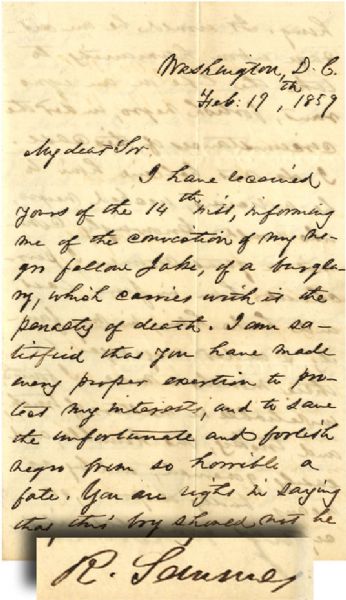 Washington, D. C.
Feb. 19th, 1859
My dear Sir
I have received
yours of the 14th inst, informing
me of the conviction of my ne-
gro fellow Jake, of a burgla-
ry, which carries with it the
penalty of death. I am sa-
tisfied that you have made
every proper exertion to pro-
tect my interest, and to save
the unfortunate and foolish
negro from so horrible a
fate. You are right in saying
that this boy should not be
R.